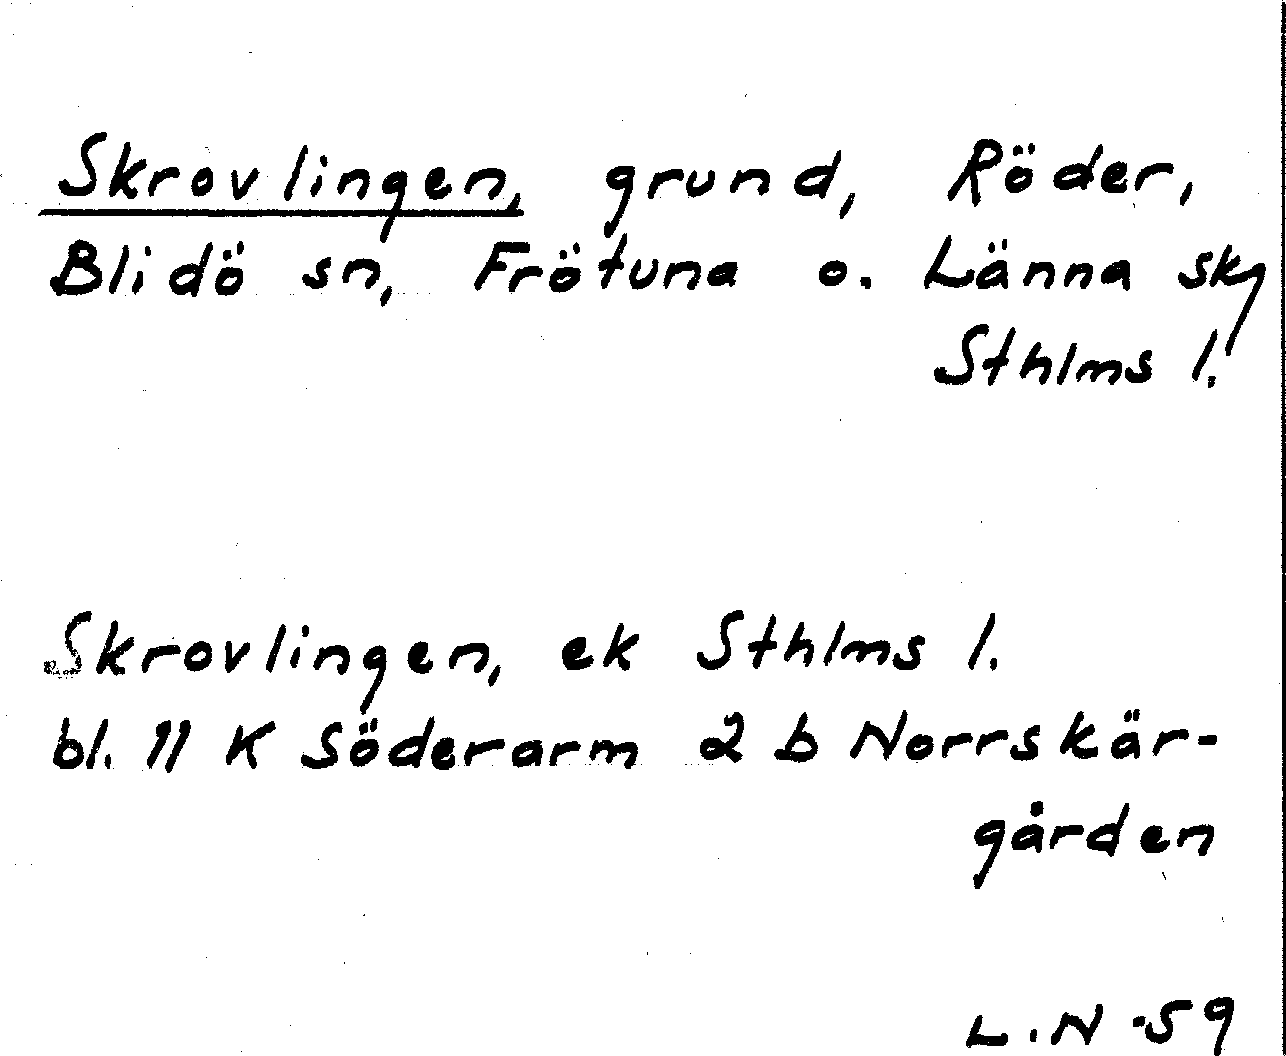 Skrovlingen, grund, Röder,
Blidö sn, Frötuna o. Länna skg
Sthlms l.
Skrovlingen, ek Sthlms l.
bl. 11 K Söderarm 2 b Norrskär-
gården
L.N -59